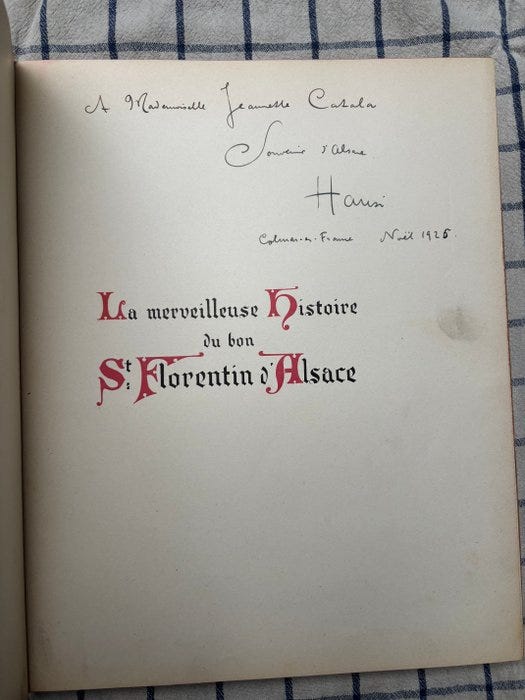 A Mademoiselle Jeannette Catala
Souvenir d'Alsace
Hansi
Colmar-en-France Noël 1925.
La merveilleuse Histoire
du bon
St. Florentin d'Alsace